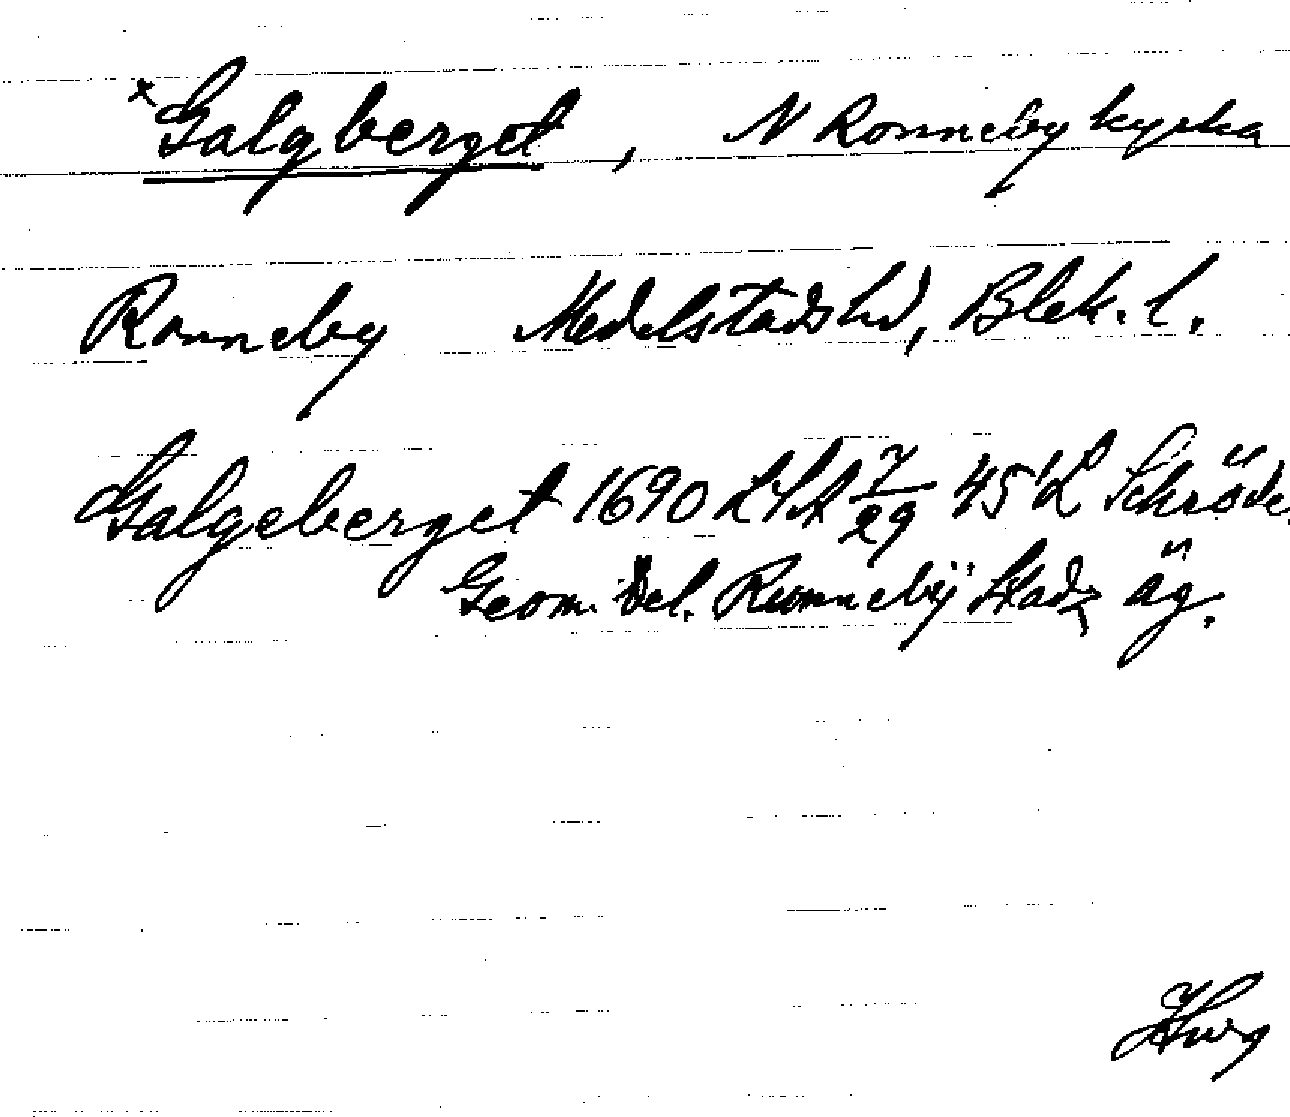 x Galgberget, N Ronneby kyrka
Ronneby Medelstads hd, Blek. l.
Galgeberget 1690 LSA 7/29 45 L Schröde
Geom. Del. Runnebÿ Stadz äg.